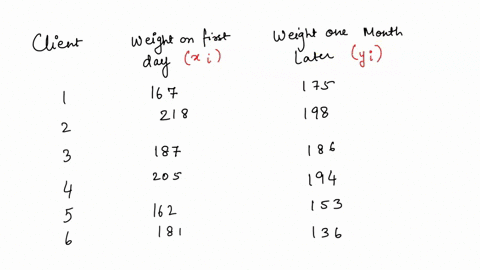 Client Weight on first day (xi) Weight one Month Later (yi)
1 167 175
2 218 198
3 187 186
4 205 194
5 162 153
6 181 136